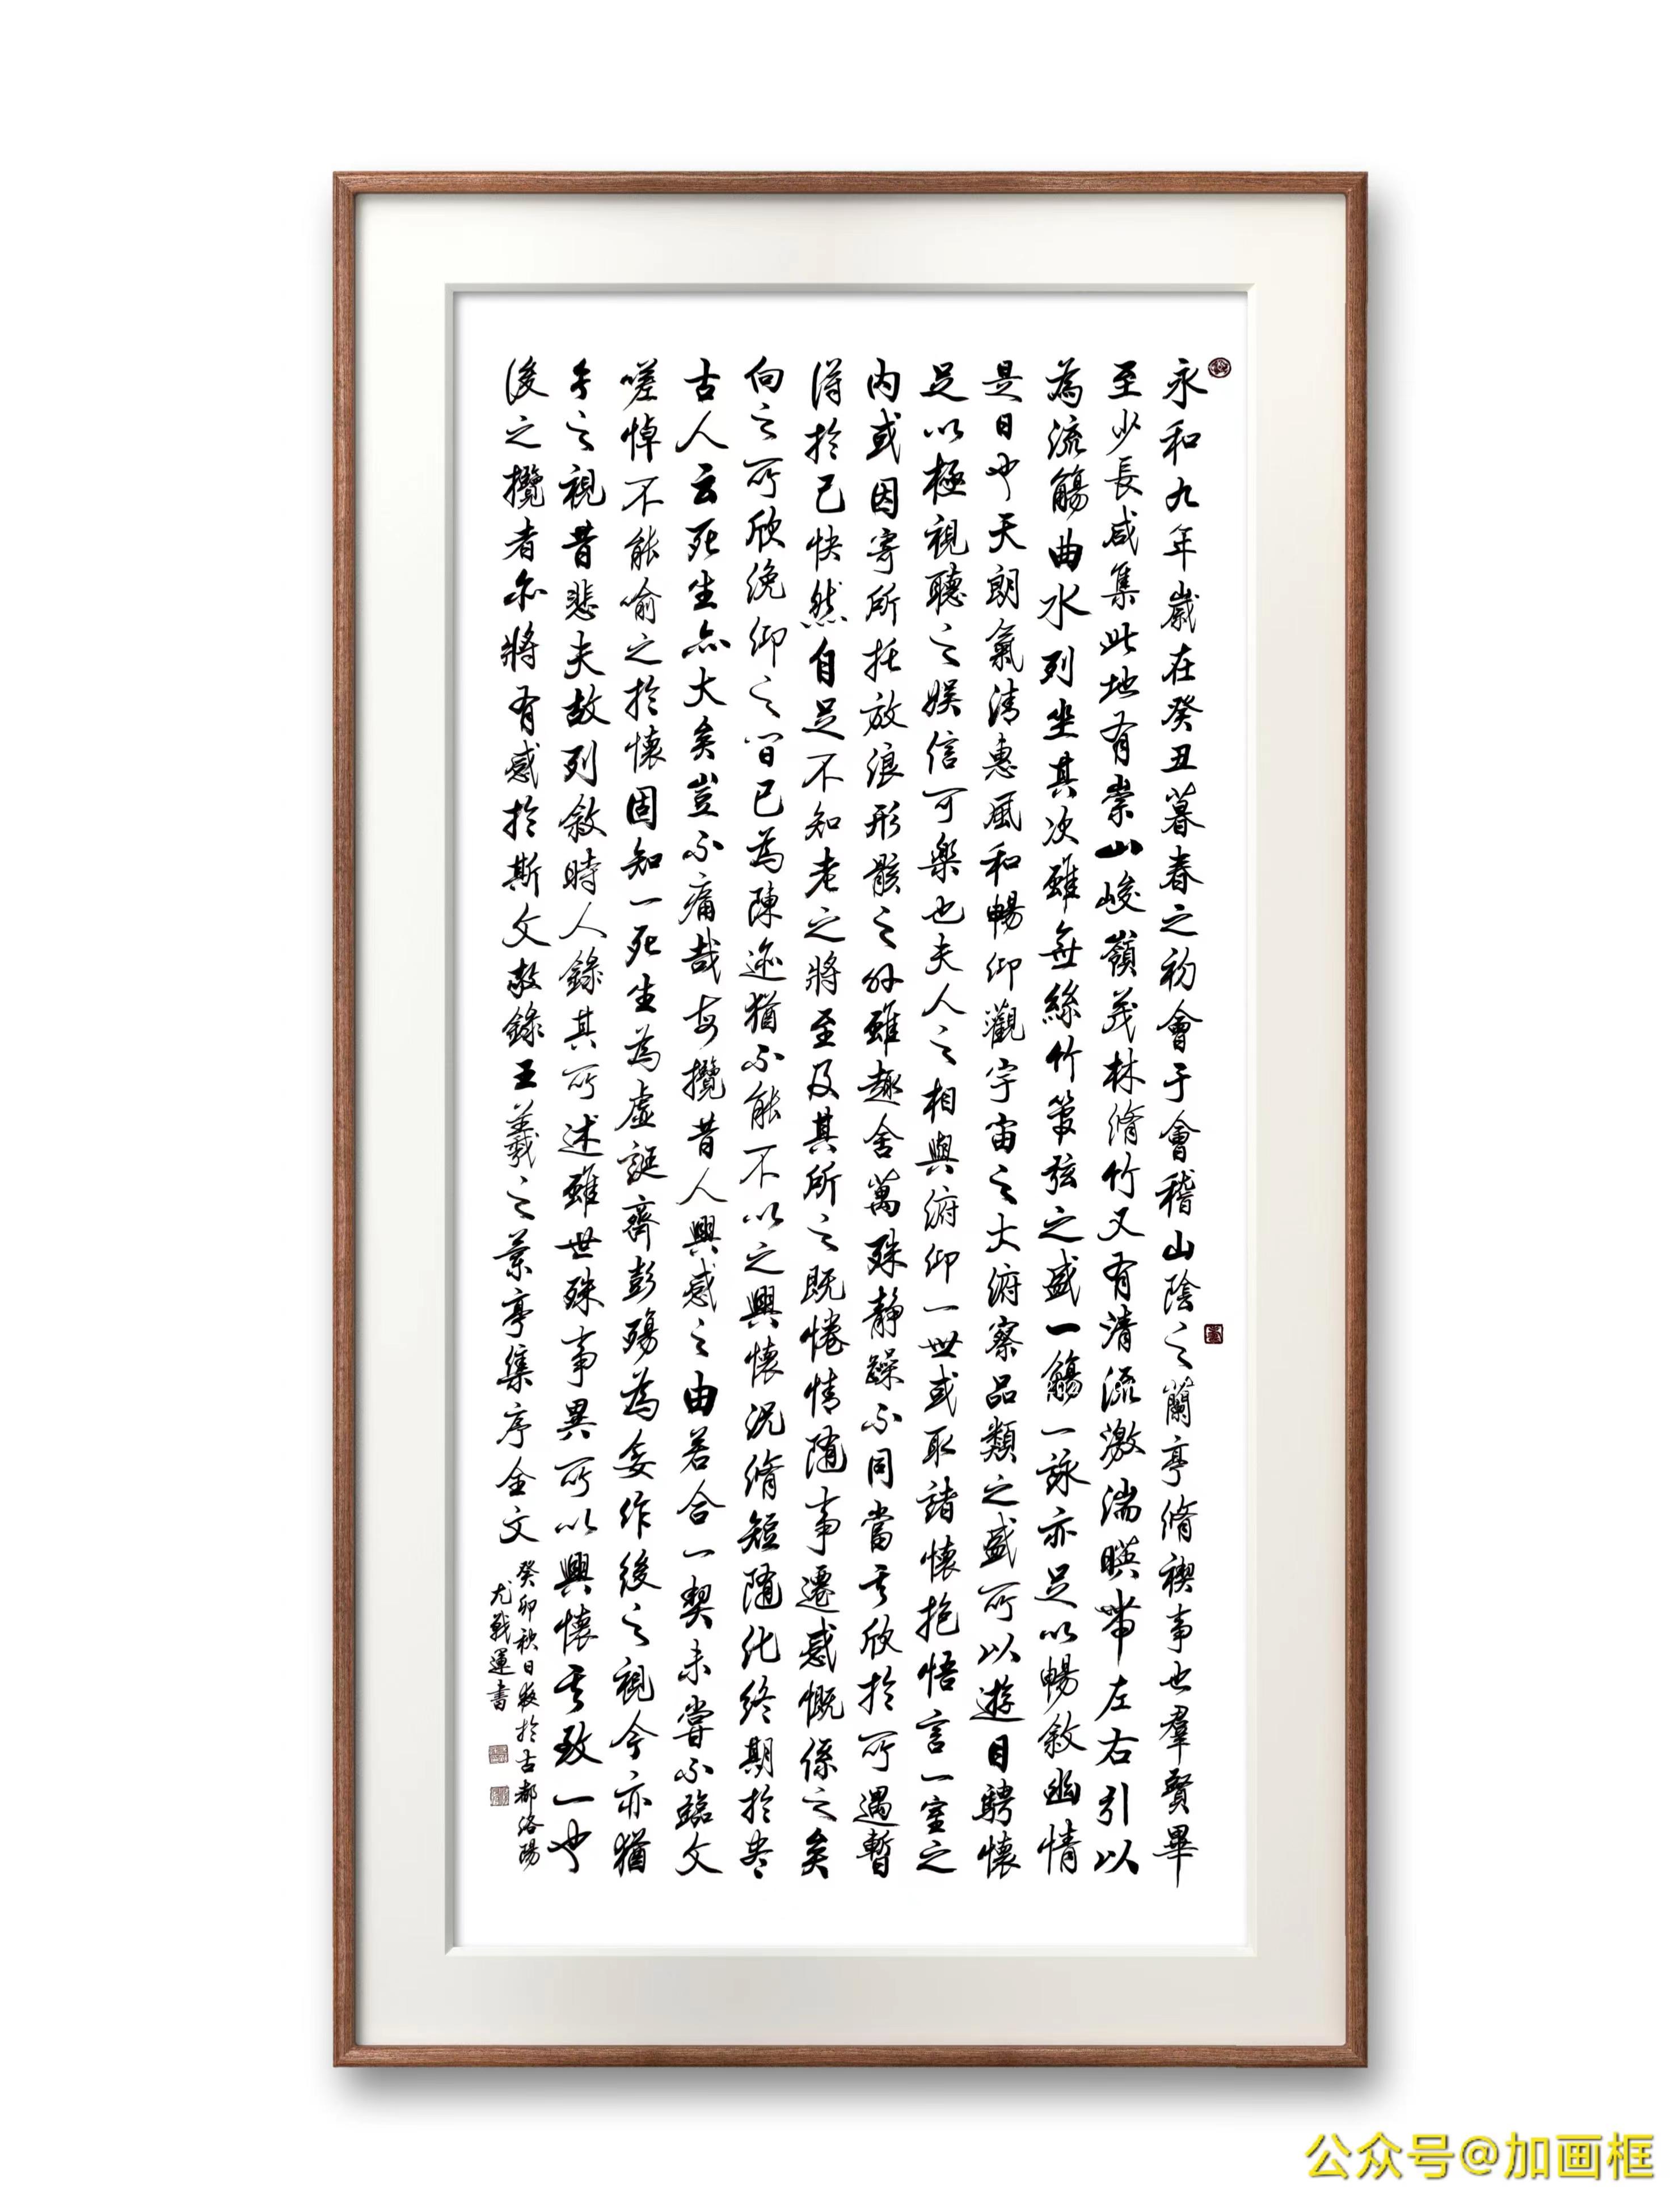 永和九年歲在癸丑暮春之初會于會稽山陰之蘭亭脩禊事也羣賢畢
至少長咸集此地有崇山峻嶺茂林脩竹又有清流激湍暎帶左右引以
為流觴曲水列坐其次雖無絲竹管弦之盛一觴一詠亦足以暢敘幽情
是日也天朗氣清惠風和暢仰觀宇宙之大俯察品類之盛所以遊目騁懷
足以極視聽之娛信可樂也夫人之相與俯仰一世或取諸懷抱悟言一室之
內或因寄所托放浪形骸之外雖趣舍萬殊靜躁不同當其欣於所遇暫
得於己快然自足不知老之將至及其所之既惓情隨事遷感慨係之矣
向之所欣俛仰之間已為陳迹猶不能不以之興懷況脩短隨化終期於盡
古人云死生亦大矣豈不痛哉每攬昔人興感之由若合一契未嘗不臨文
嗟悼不能喻之於懷固知一死生為虛誕齊彭殤為妄作後之視今亦猶
今之視昔悲夫故列敘時人錄其所述雖世殊事異所以興懷其致一也
後之攬者亦將有感於斯文敬錄王羲之蘭亭集序全文
癸卯秋日敬於古都洛陽
尤戰運書
公众号@加画框